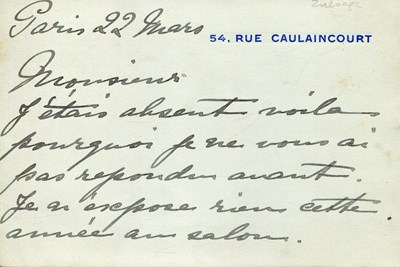 Paris 22 Mars
54, RUE CAULAINCOURT
Monsieur
J'étais absent voila
pourquoi je ne vous ai
pas repondu avant.
Je n'expose rien cette
année au salon.